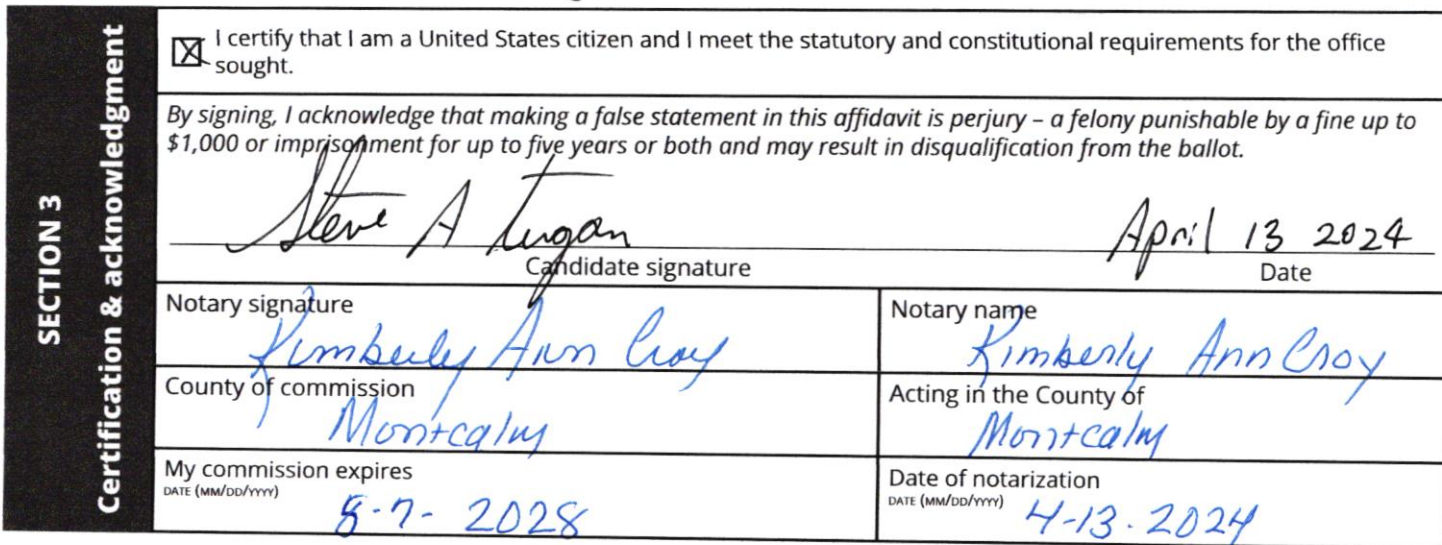 SECTION 3
Certification & acknowledgment
I certify that I am a United States citizen and I meet the statutory and constitutional requirements for the office
sought.
By signing, I acknowledge that making a false statement in this affidavit is perjury – a felony punishable by a fine up to
$1,000 or imprisonment for up to five years or both and may result in disqualification from the ballot.
Steve A April 13 2024
Candidate signature Date
Notary signature Notary name
Kimberly Ann Croy Kimberly Ann Croy
County of commission Acting in the County of
Montcalm Montcalm
My commission expires Date of notarization
DATE (MM/DD/YYYY) DATE (MM/DD/YYYY)
8-7-2028 4-13-2024